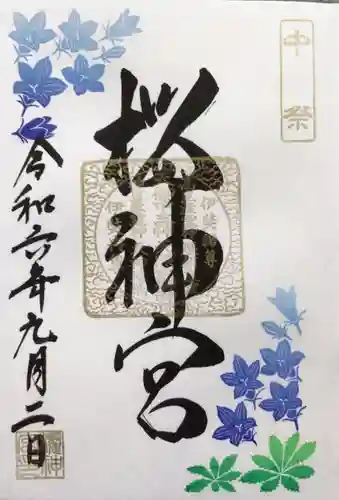 中祭
桜神宮
令和六年九月二日